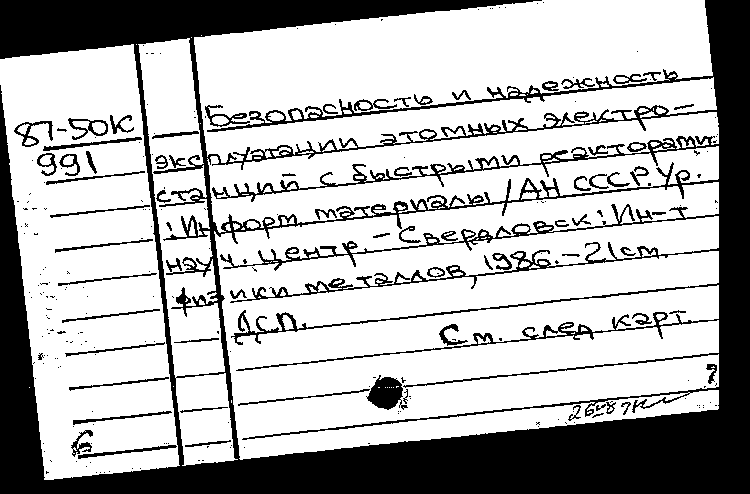 87-50К
991
Безопасность и надежность
эксплуатации атомных электро-
станций с быстрыми реакторами
: Информ. материалы / АН СССР. Ур.
науч. центр. - Свердловск: Ин-т
физики металлов, 1986. - 21 см.
ДСП.
См. след карт.
7
6